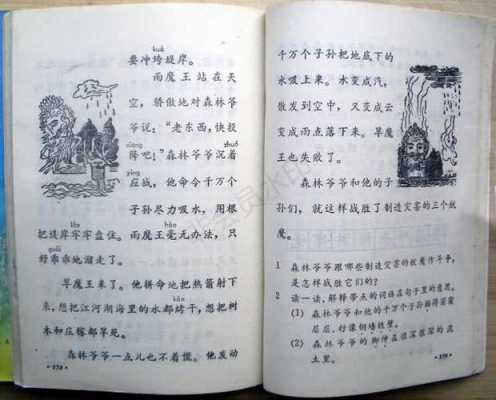 kuǎ
要冲垮堤岸。
雨魔王站在天
空，骄傲地对森林爷
爷说：“老东西，快投
xiáng
zhuó
降吧！”森林爷爷沉着
yìng
应战，他命令千万个
子孙尽力吸水，用根
把堤岸牢牢盘住。雨魔王毫无办法，只
guāi
好乖乖地溜走了。
旱魔王来了。他拼命地把热箭射下
kǎo
来，想把江河湖海里的水都烤干，想把树
木和庄稼都旱死。
森林爷爷一点儿也不着慌。他发动
千万个子孙把地底下的
水吸上来。水变成汽，
散发到空中，又变成云
变成雨点落下来。旱魔
王也失败了。
森林爷爷和他的子
孙们，就这样战胜了制造灾害的三个妖
魔。
1 森林爷爷跟哪些制造灾害的妖魔作斗争，
是怎样战胜它们的？
2 读一读，解释带点的词语在句子里的意思。
(1) 森林爷爷和他的千万个子孙排得密密
层层，好像铜墙铁壁。
(2) 森林爷爷的脚伸在很深很深的泥
土里。